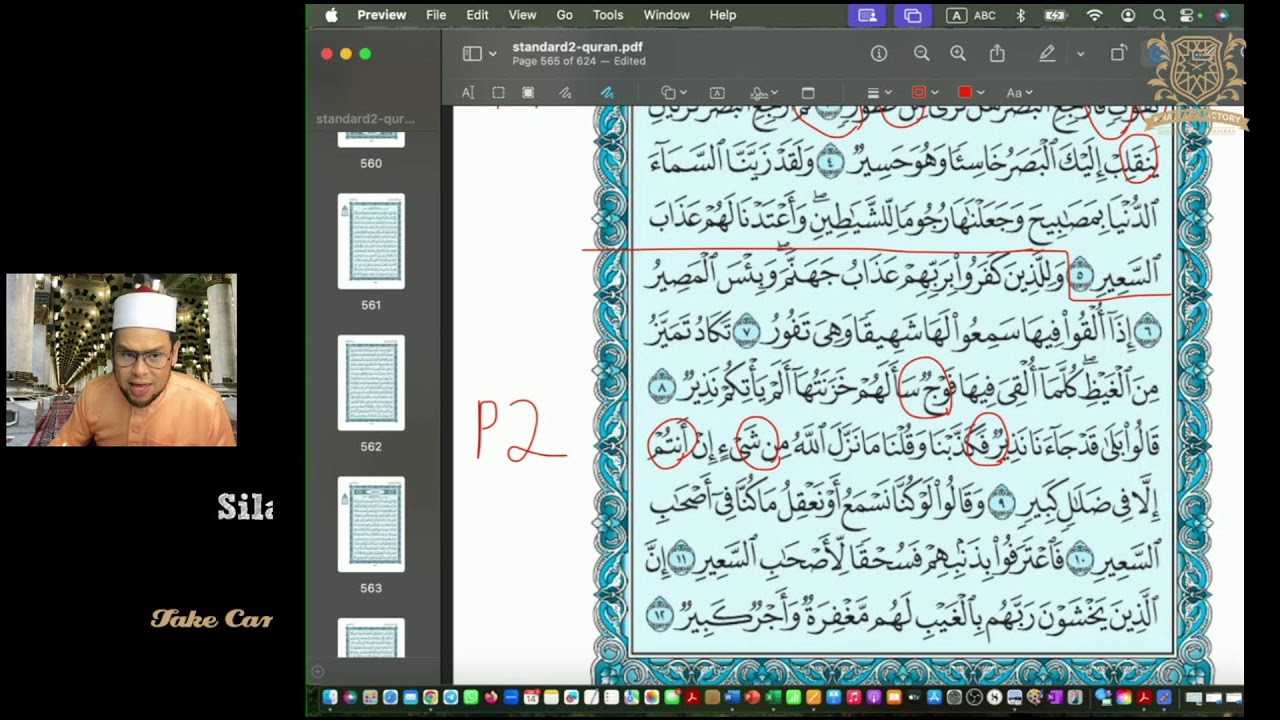 Preview File Edit View Go Tools Window Help A ABC
standard2-quran.pdf
Page 565 of 624 — Edited
Aa
standard2-qur...
560
561
562
563
يَنقَلِبْ إِلَيْكَ ٱلْبَصَرُ خَاسِئًا وَهُوَ حَسِيرٌ ٤ وَلَقَدْ زَيَّنَّا ٱلسَّمَآءَ
ٱلدُّنْيَا بِمَصَٰبِيحَ وَجَعَلْنَٰهَا رُجُومًا لِّلشَّيَٰطِينِ ۖ وَأَعْتَدْنَا لَهُمْ عَذَابَ
ٱلسَّعِيرِ ٥ وَلِلَّذِينَ كَفَرُوا۟ بِرَبِّهِمْ عَذَابُ جَهَنَّمَ ۖ وَبِئْسَ ٱلْمَصِيرُ
٦ إِذَآ أُلْقُوا۟ فِيهَا سَمِعُوا۟ لَهَا شَهِيقًا وَهِىَ تَفُورُ ٧ تَكَادُ تَمَيَّزُ
مِنَ ٱلْغَيْظِ ۖ كُلَّمَآ أُلْقِىَ فِيهَا فَوْجٌ سَأَلَهُمْ خَزَنَتُهَآ أَلَمْ يَأْتِكُمْ نَذِيرٌ ٨
قَالُوا۟ بَلَىٰ قَدْ جَآءَنَا نَذِيرٌ فَكَذَّبْنَا وَقُلْنَا مَا نَزَّلَ ٱللَّهُ مِن شَىْءٍ إِنْ أَنتُمْ
إِلَّا فِى ضَلَٰلٍ كَبِيرٍ ٩ وَقَالُوا۟ لَوْ كُنَّا نَسْمَعُ أَوْ نَعْقِلُ مَا كُنَّا فِىٓ أَصْحَٰبِ
ٱلسَّعِيرِ ١٠ فَٱعْتَرَفُوا۟ بِذَنۢبِهِمْ فَسُحْقًا لِّأَصْحَٰبِ ٱلسَّعِيرِ ١١ إِنَّ
ٱلَّذِينَ يَخْشَوْنَ رَبَّهُم بِٱلْغَيْبِ لَهُم مَّغْفِرَةٌ وَأَجْرٌ كَبِيرٌ ١٢
P2
Sila
Take Car